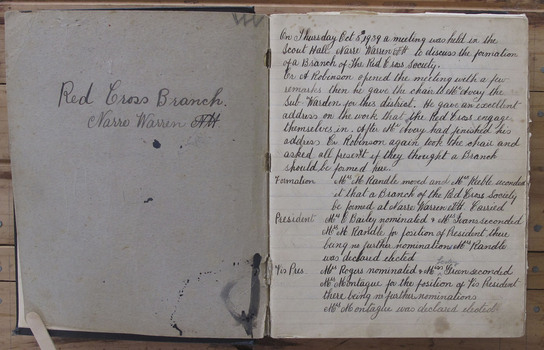 Red Cross Branch.
Narre Warren Nth
On Thursday Oct 5th 1939 a meeting was held in the
Scout Hall Narre Warren Nth to discuss the formation
of a Branch of The Red Cross Society.
Cr A Robinson opened the meeting with a few
remarks then he gave the chair to Mr Avay the
Sub Warden for this district. He gave an excellent
address on the work that the Red Cross engage
themselves in. After Mr Avay had finished his
address Cr Robinson again took the chair and
asked all present if they thought a Branch
should be formed here.
Formation Mrs M Randle moved and Mrs Keeble seconded
it that a Branch of the Red Cross Society
be formed at Narre Warren Nth Carried
President Mrs E Bailey nominated & Mrs seconded
Mrs M Randle for position of President there
being no further nominations Mrs Randle
was declared elected
Vis Pres Mrs Rogers nominated & Green seconded
Mrs Montague for the position of Vis President
there being no further nominations
Mrs Montague was declared elected